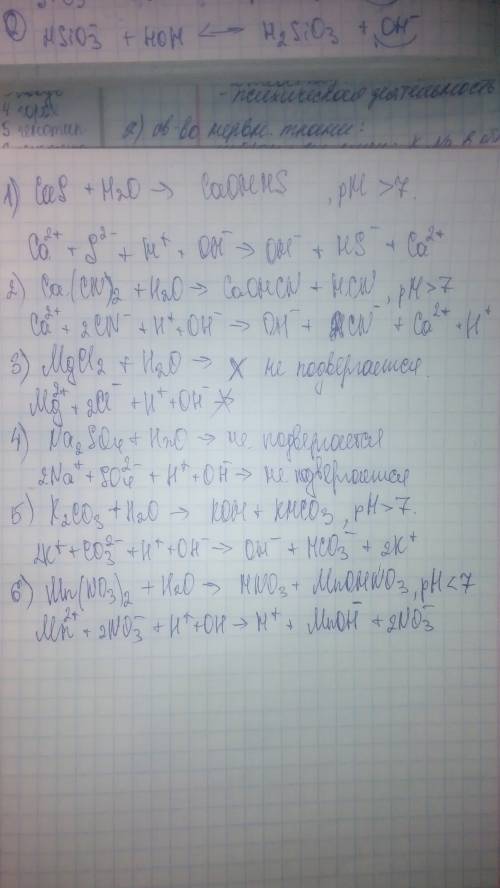 ② HSiO₃⁻ + HOH <--> H₂SiO₃ + OH⁻
- психическая деятельность
4
5
2) св-во нервн. ткани:
1) CaS + H₂O → CaOHHS , pH >7.
Ca²⁺ + S²⁻ + H⁺ + OH⁻ → OH⁻ + HS⁻ + Ca²⁺
2) Ca(CN)₂ + H₂O → CaOHCN + HCN, pH>7
Ca²⁺ + 2CN⁻ + H⁺ + OH⁻ → OH⁻ + 2CN⁻ + Ca²⁺ + H⁺
3) MgCl₂ + H₂O → X не подвергается.
Mg²⁺ + 2Cl⁻ + H⁺ + OH⁻
4) Na₂SO₄ + H₂O → не подвергается
2Na⁺ + SO₄²⁻ + H⁺ + OH⁻ → не подвергается
5) K₂CO₃ + H₂O → KOH + KHCO₃, pH>7.
2K⁺ + CO₃²⁻ + H⁺ + OH⁻ → OH⁻ + HCO₃⁻ + 2K⁺
6) Mn(NO₃)₂ + H₂O → HNO₃ + MnOHNO₃, pH<7
Mn²⁺ + 2NO₃⁻ + H⁺ + OH → H⁺ + MnOH⁻ + 2NO₃⁻